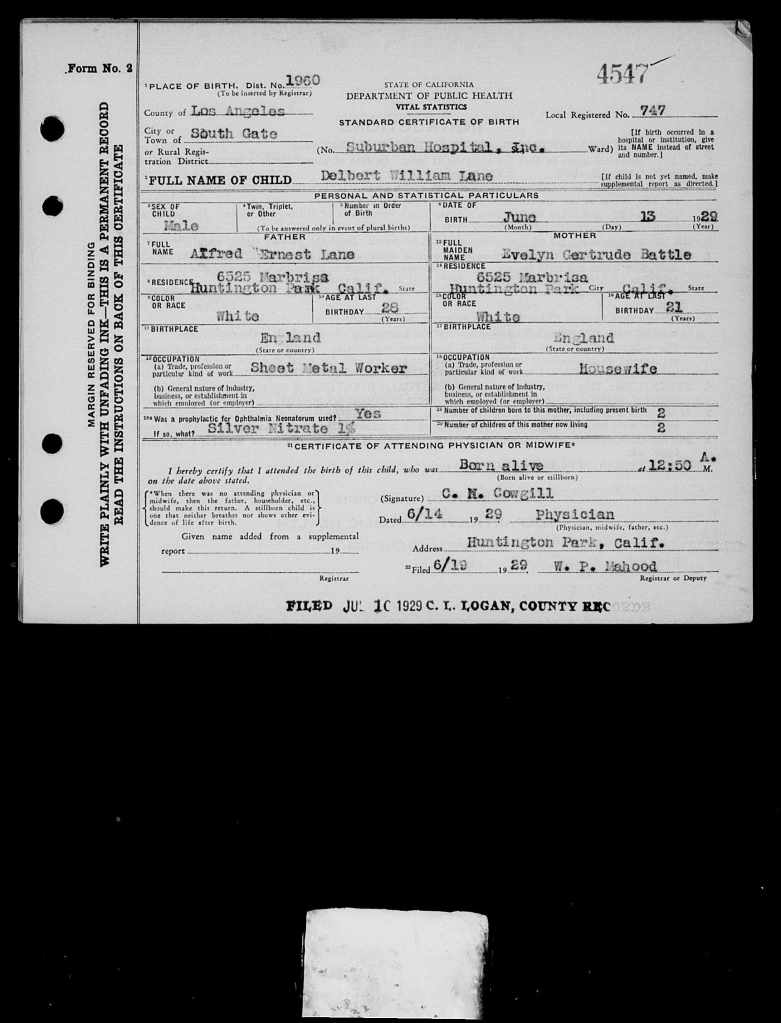 Form No. 2
4547
MARGIN RESERVED FOR BINDING
WRITE PLAINLY WITH UNFADING INK—THIS IS A PERMANENT RECORD
READ THE INSTRUCTIONS ON BACK OF THIS CERTIFICATE
1 PLACE OF BIRTH. Dist. No. 1960
(To be inserted by Registrar)
County of Los Angeles
City or Town of South Gate
or Rural Registration District
STATE OF CALIFORNIA
DEPARTMENT OF PUBLIC HEALTH
VITAL STATISTICS
STANDARD CERTIFICATE OF BIRTH
Local Registered No. 747
(No. Suburban Hospital, Inc. Ward)
[If birth occurred in a hospital or institution, give its NAME instead of street and number.]
2 FULL NAME OF CHILD Delbert William Lane
[If child is not yet named, make supplemental report as directed.]
PERSONAL AND STATISTICAL PARTICULARS
3 SEX OF CHILD Male
4 Twin, Triplet, or Other
5 Number in Order of Birth
(To be answered only in event of plural births)
6 DATE OF BIRTH June 13 1929
(Month) (Day) (Year)
FATHER
7 FULL NAME Alfred Ernest Lane
8 RESIDENCE 6525 Marbrisa
Huntington Park Calif. State
9 COLOR OR RACE White
10 AGE AT LAST BIRTHDAY 28
(Years)
11 BIRTHPLACE England
(State or country)
12 OCCUPATION
(a) Trade, profession or particular kind of work Sheet Metal Worker
(b) General nature of industry, business, or establishment in which employed (or employer)
MOTHER
13 FULL MAIDEN NAME Evelyn Gertrude Battle
14 RESIDENCE 6525 Marbrisa
Huntington Park City Calif. State
15 COLOR OR RACE White
16 AGE AT LAST BIRTHDAY 21
(Years)
17 BIRTHPLACE England
(State or country)
18 OCCUPATION
(a) Trade, profession or particular kind of work Housewife
(b) General nature of industry, business, or establishment in which employed (or employer)
Was a prophylactic for Ophthalmia Neonatorum used? Yes
If so, what? Silver Nitrate 1%
Number of children born to this mother, including present birth 2
20 Number of children of this mother now living 2
21 CERTIFICATE OF ATTENDING PHYSICIAN OR MIDWIFE*
I hereby certify that I attended the birth of this child, who was Born alive at 12:50 A. M.
on the date above stated.
(Born alive or stillborn)
*When there was no attending physician or midwife, then the father, householder, etc., should make this return. A stillborn child is one that neither breathes nor shows other evidence of life after birth.
(Signature) C. N. Cowgill
Dated 6/14 1929 Physician
(Physician, midwife, father, etc.)
Given name added from a supplemental
report 19
Registrar
Address Huntington Park, Calif.
22 Filed 6/19 1929 W. P. Mahood
Registrar or Deputy
FILED JUL 10 1929 C. L. LOGAN, COUNTY REC